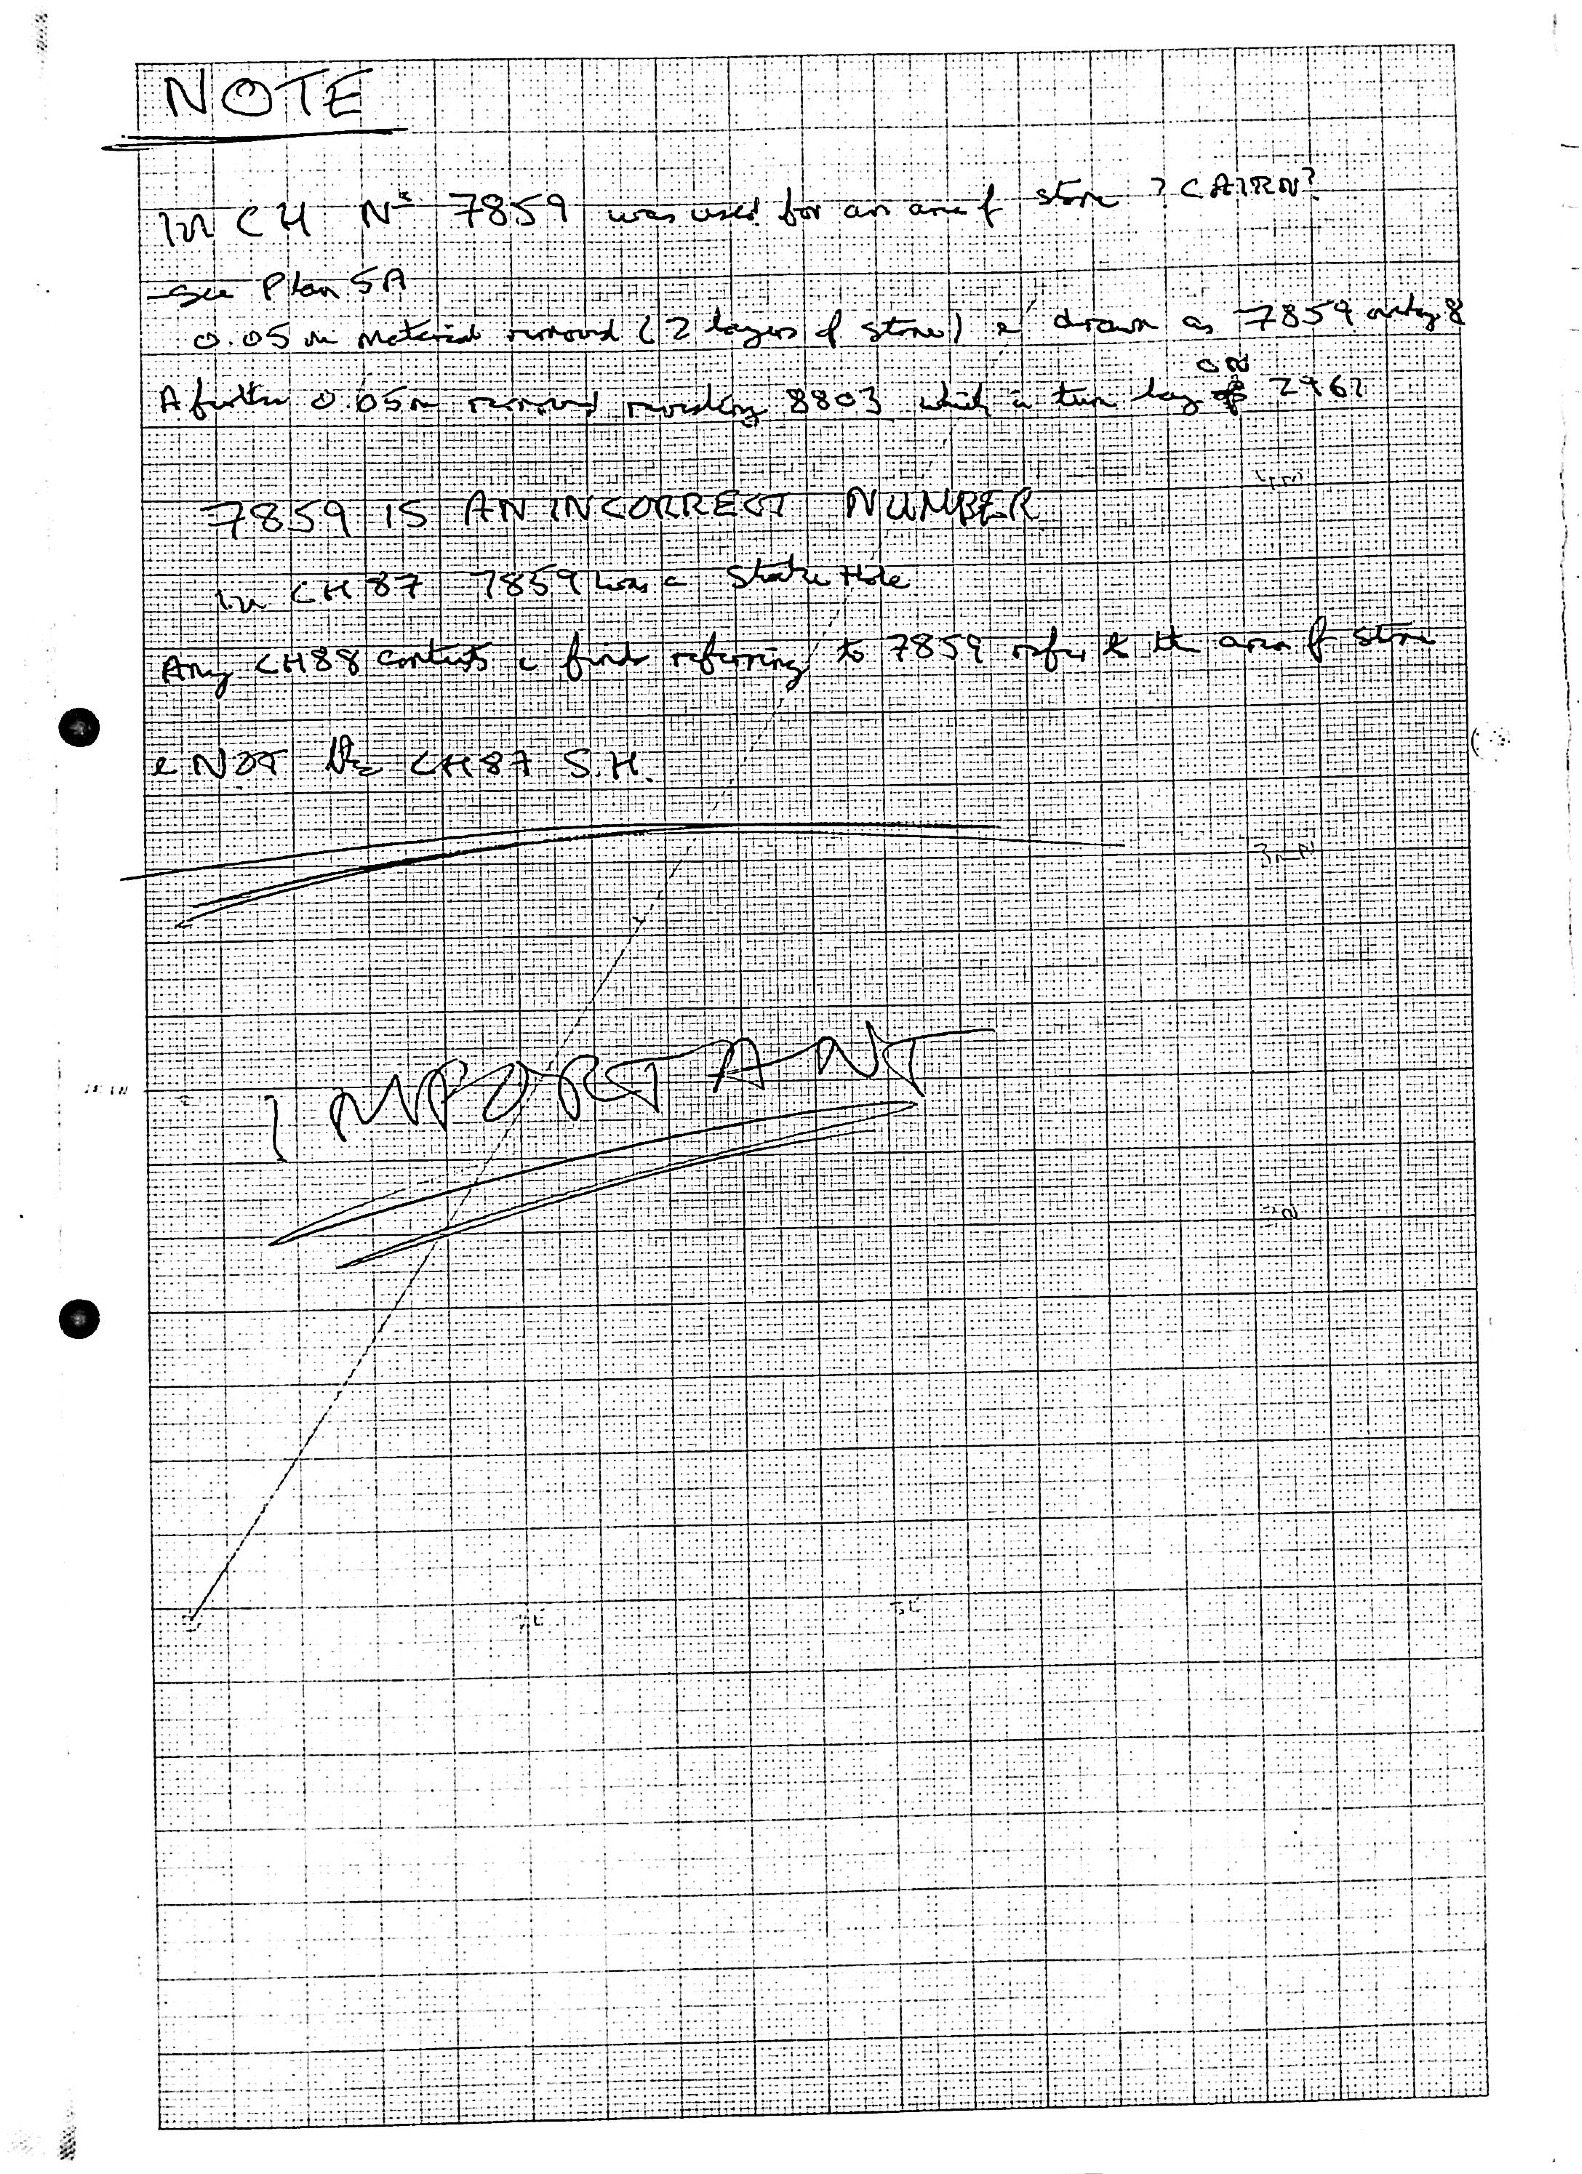 NOTE
In CH Nº 7859 was used for an area of stone ? CAIRN?
- See Plan 5A
0.05m material removed (2 layers of stone) & drawn as 7859 only &
A further 0.05m removed revealing 8803 which in turn lay ON 2961
7859 IS AN INCORRECT NUMBER
In CH87 7859 was a Stake Hole
Any CH88 contexts & finds referring to 7859 refer to the area of stone
& NOT the CH87 S.H.
IMPORTANT